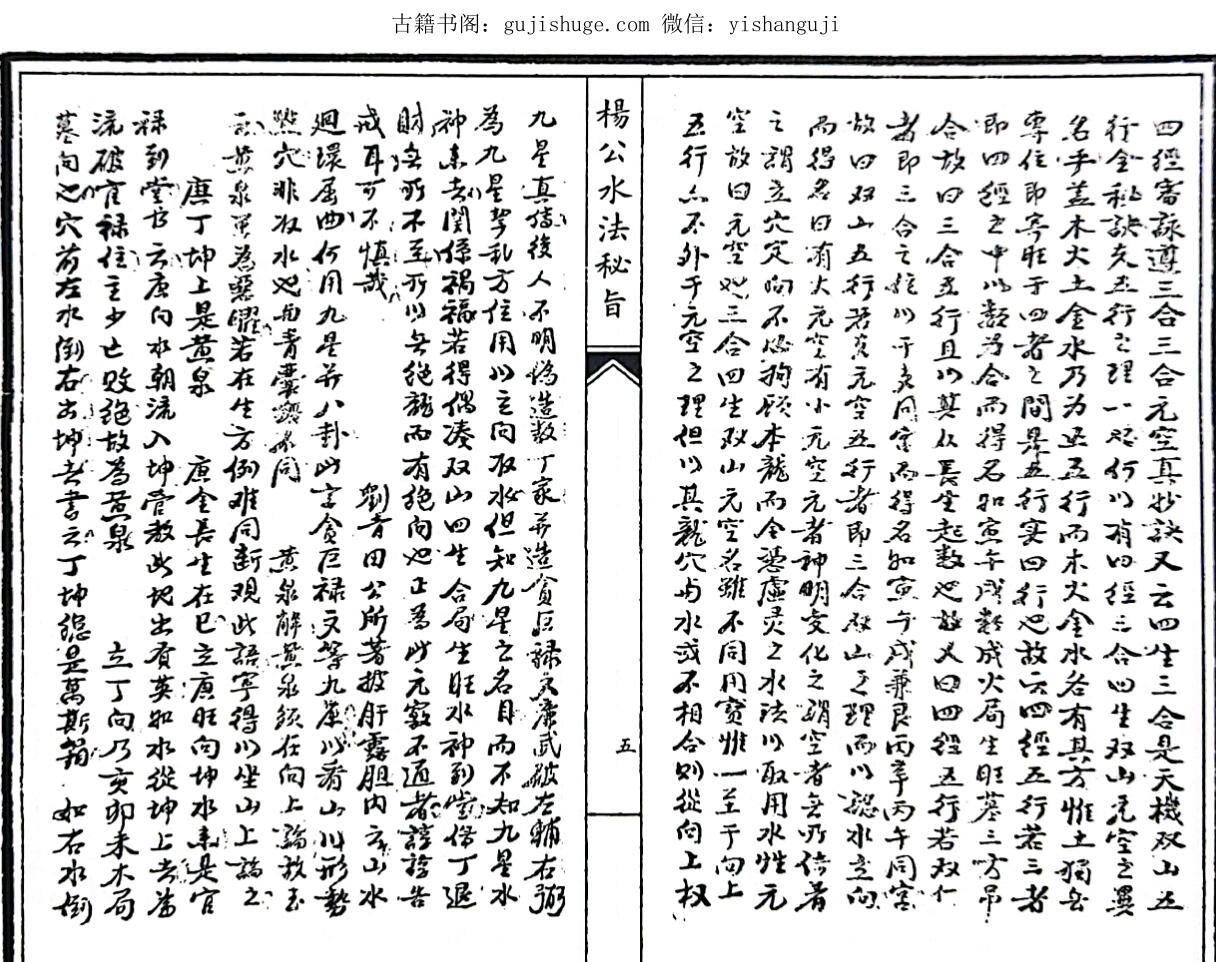 古籍书阁：gujishuge.com 微信：yishanguji
四經審詠遵三合三合元空真妙訣又云四生三合是天機双山五
行全秘訣夫五行之理一也何以有四經三合四生双山元空之異
名乎蓋木火土金水乃为正五行而木火金水各有其方惟土獨无
專位即寄旺于四者之間是五行实四行也故云四經五行若三者
即四經之中以類为合而得名如寅午戌類成火局生旺墓三方吊
合故曰三合五行且以其从長生起数也故又曰四經五行若双仁
者即三合之位以干支同宮而得名如寅午戌兼艮丙辛丙午同宮
故曰双山五行若夫元空五行者即三合双山之理而以認水立向
而得名曰有大元空有小元空元者神明变化之謂空者无所倚着
之謂立穴定向不必拘顾本龍而全憑虚灵之水法以取用水性元
空故曰元空也三合四生双山元空名雖不同用實惟一至于向上
五行亦不外乎元空之理但以其龍穴与水或不相合则從向上权
楊公水法秘旨
五
九星真傳後人不明偽造数丁家并造貪巨祿文廉武破左輔右弼
為九星挐乱方位用以立向取水但知九星之名目而不知九星水
神来去関係禍福若得偶凑双山四生合局生旺水神到堂俻丁退
財无所不至所以无絕龍而有絕向也正為此元竅不通者諄諄告
戒耳可不慎哉 劉青田公所著披肝露胆内云山水
廻環屈曲何用九星并八卦此言貪巨禄文等九屋以看山川形勢
點穴非取水也与青囊 同 黄泉解黄泉須在向上論故玉
云黄泉單為惡曜若在生方例难同断观此語寧得以坐山上論之
庚丁坤上是黄泉 庚金長生在巳立庚旺向坤水来是官
禄到堂古云庚向水朝流入坤管教此地出賢英如水從坤上去为
流破官禄位主少亡败絕故為黄泉 立丁向乃亥卯未木局
墓向也穴前左水倒右出坤去書云丁坤终是萬斯箱 如右水倒